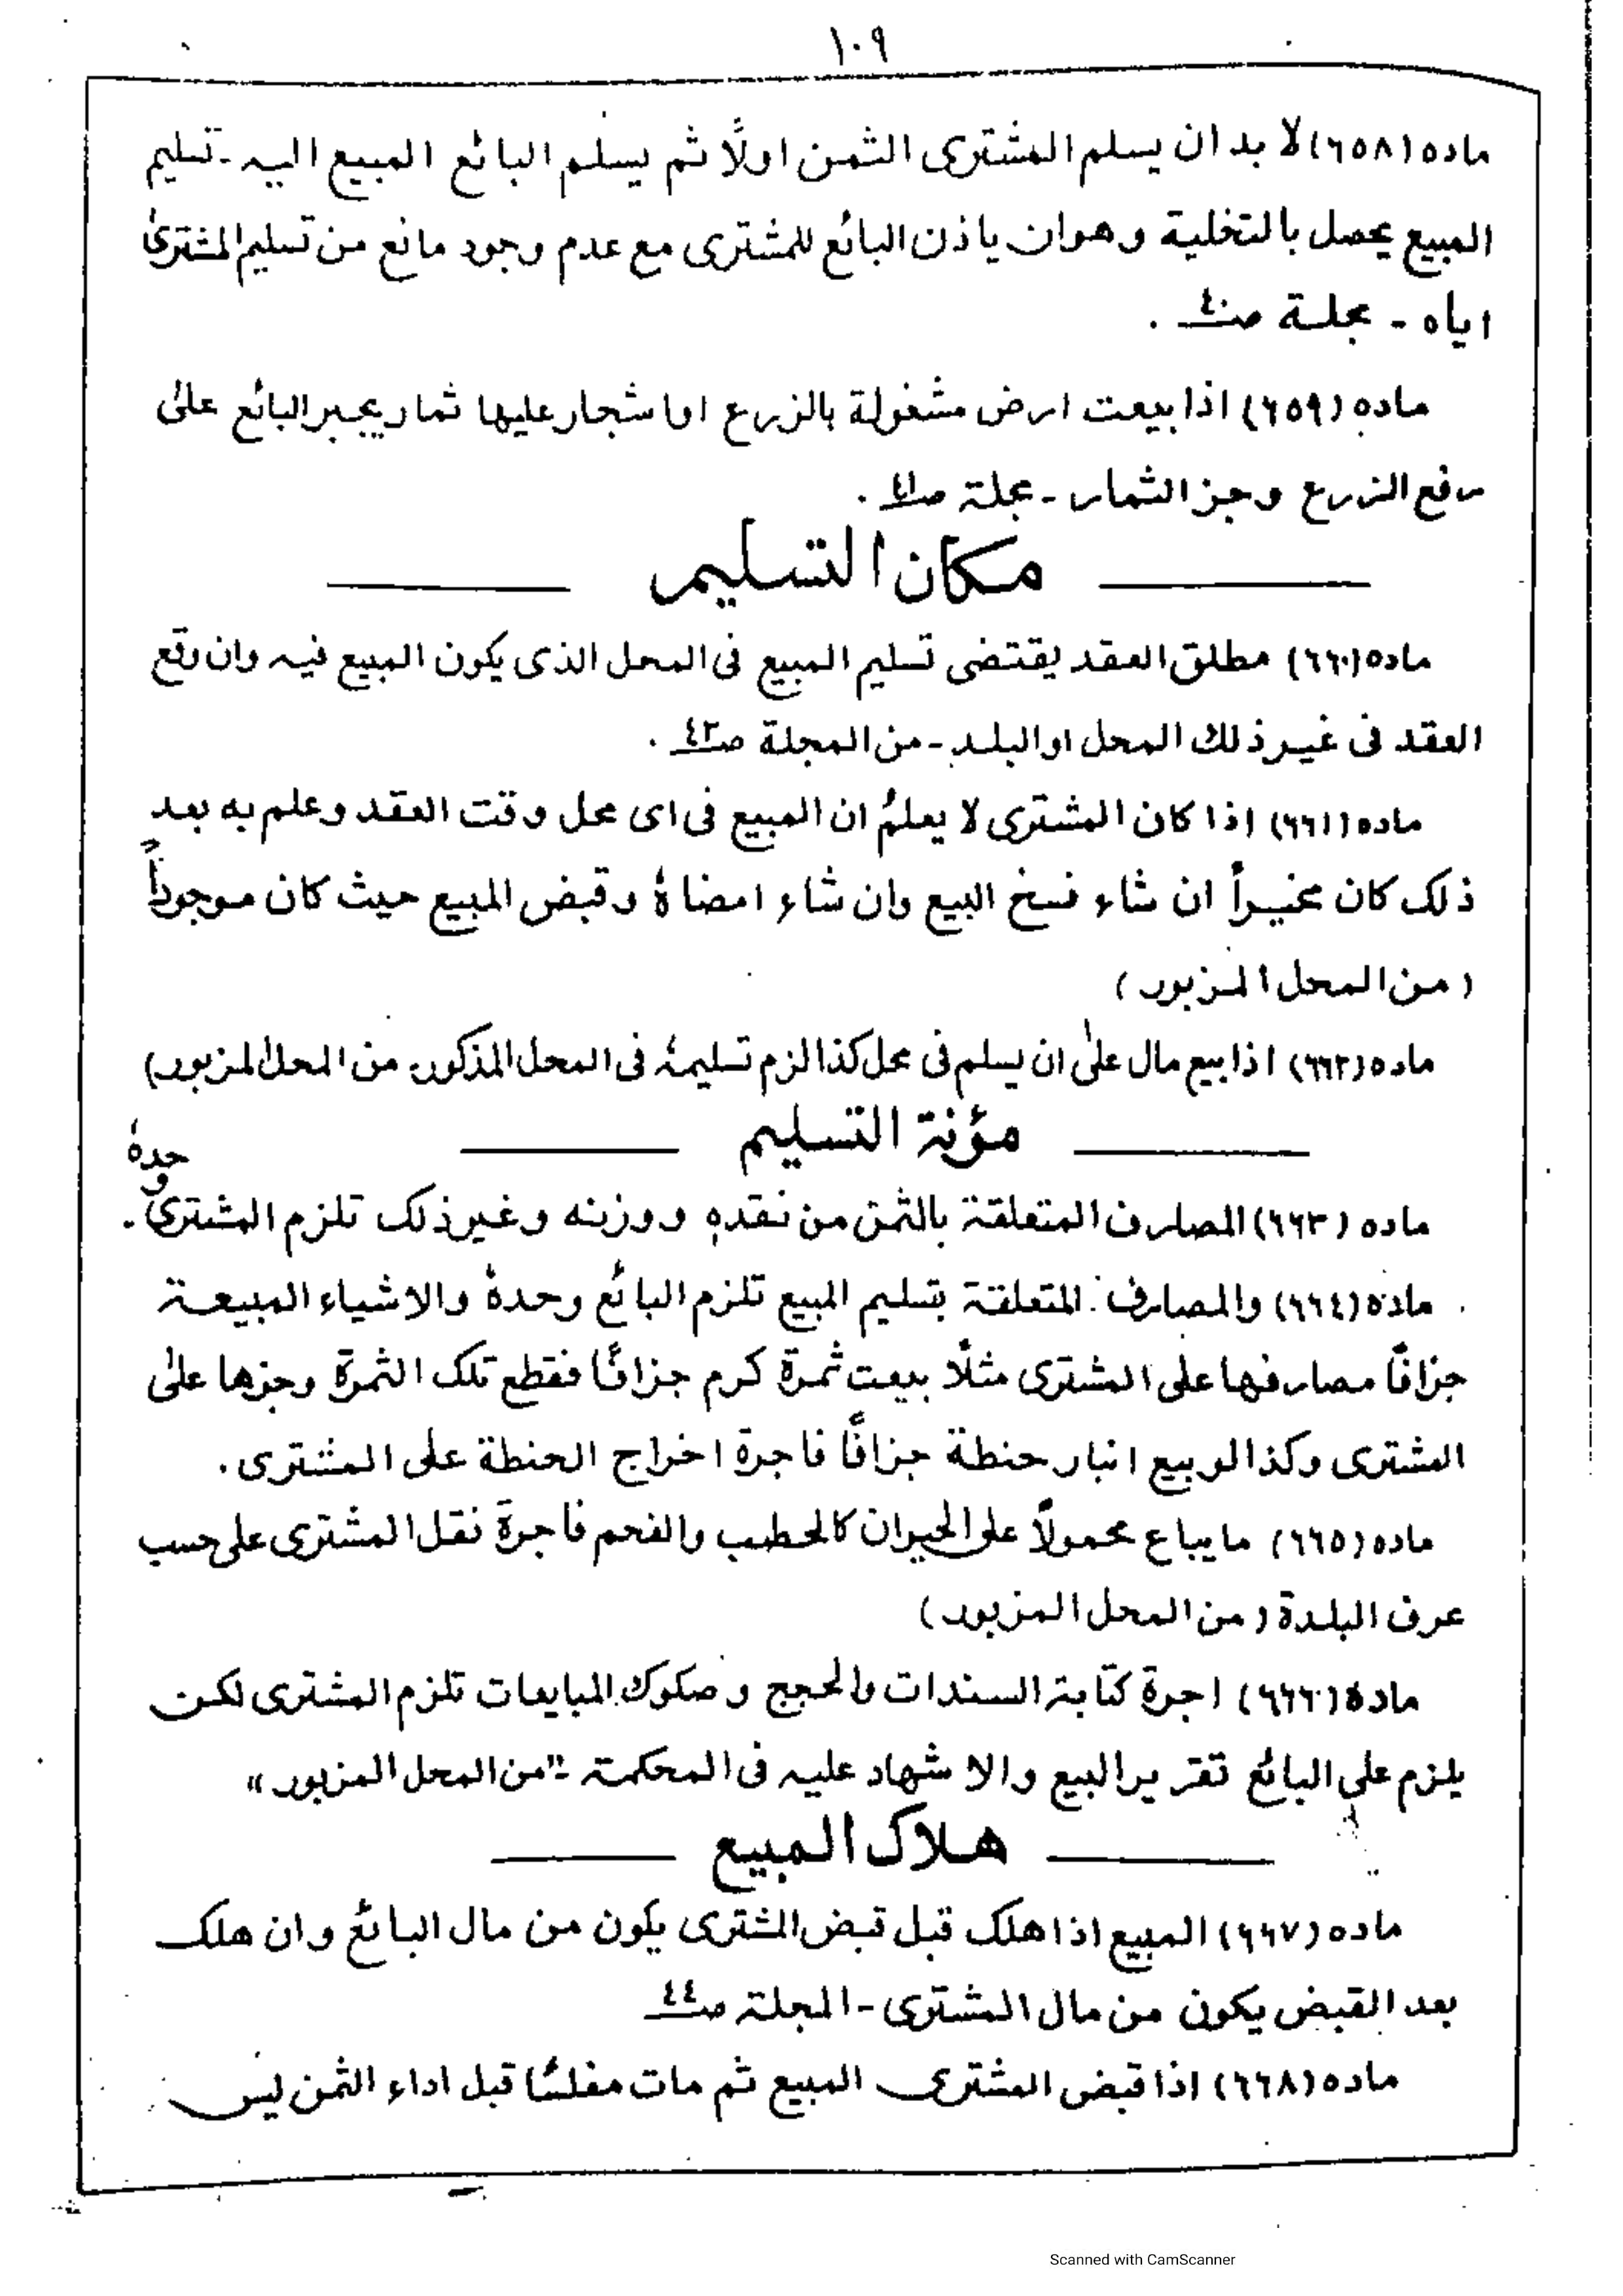 ١٠٩
ماده (٦٥٨) لا بد ان يسلم المشترى الثمن اولًا ثم يسلم البائع المبيع اليه - تسليم
المبيع يحصل بالتخلية وهوان ياذن البائع للمشترى مع عدم وجود مانع من تسليم المشترى
اياه - مجلة صـ٤٠ .
ماده (٦٥٩) اذا بيعت ارض مشغولة بالزرع اوا شجار عليها ثمار يجبر البائع على
رفع الزرع وجز الثمار - مجلة صـ٤١ .
مكان التسليم
ماده (٦٦٠) مطلق العقد يقتضى تسليم المبيع فى المحل الذى يكون المبيع فيه وان وقع
العقد فى غير ذلك المحل او البلد - من المجلة صـ٤٢ .
ماده (٦٦١) اذا كان المشترى لا يعلم ان المبيع فى اى محل وقت العقد وعلم به بعد
ذلك كان مخيراً ان شاء فسخ البيع وان شاء امضاهُ وقبض المبيع حيث كان موجوداً
(من المحل المزبور)
ماده (٦٦٢) اذا بيع مال على ان يسلم فى محل كذا لزم تسليمهُ فى المحل المذكور. من المحل المزبور)
مؤنة التسليم
ماده (٦٦٣) المصارف المتعلقة بالثمن من نقده ووزنه وغير ذلك تلزم المشترى وحدهُ .
ماده (٦٦٤) والمصارف المتعلقة بتسليم المبيع تلزم البائع وحدهُ والاشياء المبيعة
جزافًا مصارفها على المشترى مثلًا بيعت ثمرة كرم جزافًا فقطع تلك الثمرة وجزها على
المشترى وكذا لو بيع انبار حنطة جزافًا فاجرة اخراج الحنطة على المشترى .
ماده (٦٦٥) ما يباع محمولًا على الحيوان كالحطب والفحم فاجرة نقل المشترى على حسب
عرف البلدة (من المحل المزبور)
مادة (٦٦٦) اجرة كتابة السندات والحجج وصكوك المبايعات تلزم المشترى لكن
يلزم على البائع تقرير البيع والاشهاد عليه فى المحكمة "من المحل المزبور"
هلاك المبيع
ماده (٦٦٧) المبيع اذا هلك قبل قبض المشترى يكون من مال البائع وان هلك
بعد القبض يكون من مال المشترى - المجلة صـ٤٤
ماده (٦٦٨) اذا قبض المشترى المبيع ثم مات مفلسًا قبل اداء الثمن ليس
Scanned with CamScanner